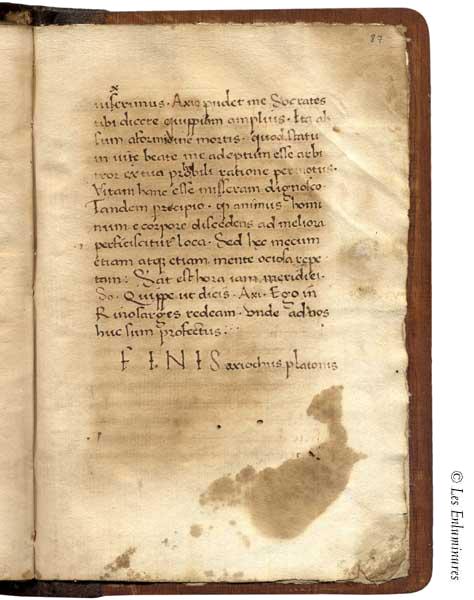 87
x
uiserimus. Axi. pudet me Socrates
tibi dicere quippiam amplius. Ita ab
sum a formidine mortis. quod statu
in uite beate me adeptum esse arbi
tror ex tua probili ratione permotus.
Vitam hanc esse miseram dignosco.
Tandem precipio. qp animus homi
num e corpore discedens ad meliora
perficiscitur loca. Sed hec mecum
etiam atqz etiam mente ociosa repe
tam. Sat est hora iam meridiei.
So. Quippe ut dicis. Axi. Ego in
Rinosarges redeam. unde ad uos
huc sum profectus:
FINIS axiochus platonis
© Les Enluminures